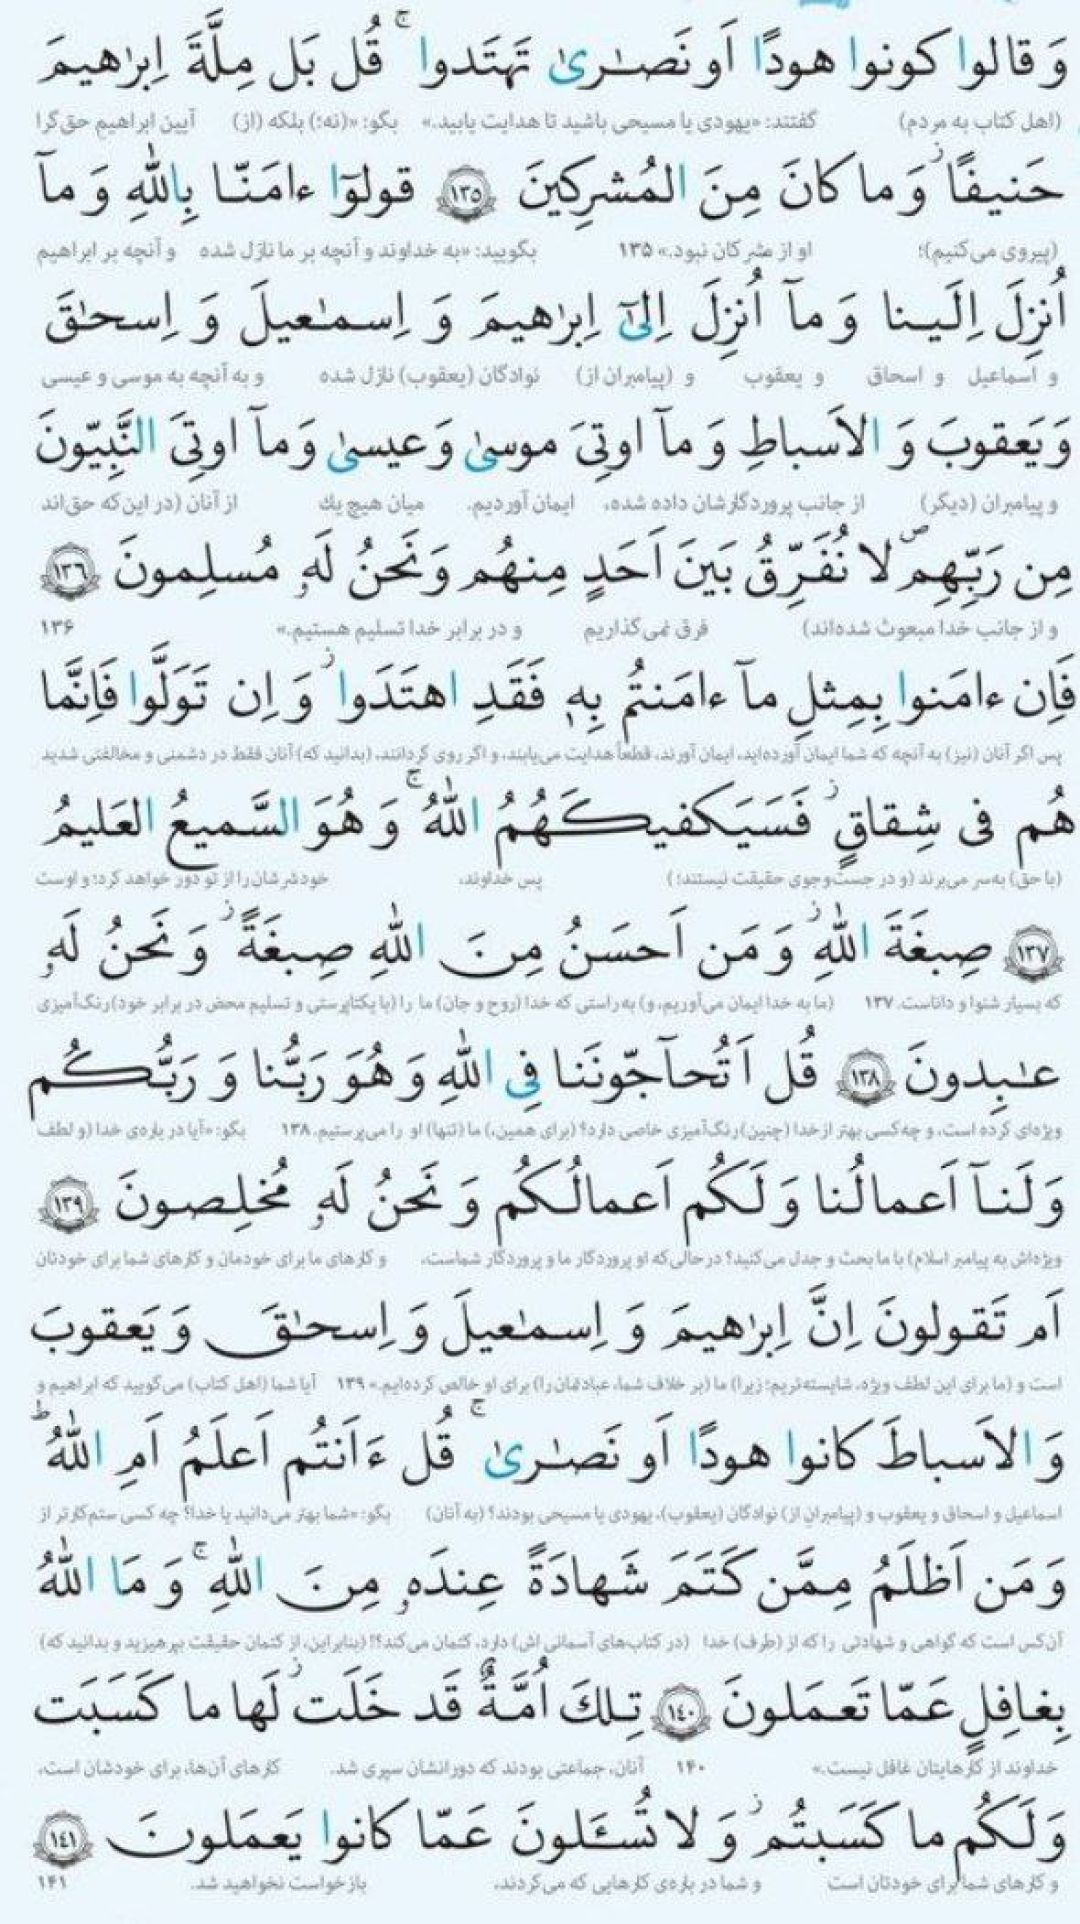 وَ قالوا كونوا هودًا اَو نَصـٰرىٰ تَهتَدوا ۚ قُل بَل مِلَّةَ اِبرٰهيمَ
(اهل کتاب به مردم) گفتند: «یهودی یا مسیحی باشید تا هدایت یابید.» بگو: «(نه؛) بلکه (از) آیین ابراهیم حق‌گرا
حَنيفًا ۖ وَ ما كانَ مِنَ المُشرِكينَ ١٣٥ قولوٓا ءامَنّا بِاللهِ وَ مآ
(پیروی می‌کنیم)؛ او از مشرکان نبود.» ۱۳۵ بگویید: «به خداوند و آنچه بر ما نازل شده و آنچه بر ابراهیم
اُنزِلَ اِلَينا وَ مآ اُنزِلَ اِلىٰٓ اِبرٰهيمَ وَ اِسمـٰعيلَ وَ اِسحـٰقَ
و اسماعیل و اسحاق و یعقوب و (پیامبران از) نوادگان (یعقوب) نازل شده و به آنچه به موسی و عیسی
وَ يَعقوبَ وَ الاَسباطِ وَ مآ اوتِىَ موسىٰ وَ عيسىٰ وَ مآ اوتِىَ النَّبِيّونَ
و پیامبران (دیگر) از جانب پروردگارشان داده شده، ایمان آوردیم. میان هیچ یك از آنان (در این‌که حق‌اند
مِن رَبِّهِم ۖ لا نُفَرِّقُ بَينَ اَحَدٍ مِنهُم وَ نَحنُ لَهٗ مُسلِمونَ ١٣٦
و از جانب خدا مبعوث شده‌اند) فرق نمی‌گذاریم و در برابر خدا تسلیم هستیم.» ۱۳۶
فَاِن ءامَنوا بِمِثلِ مآ ءامَنتُم بِهٖ فَقَدِ اهتَدَوا ۖ وَ اِن تَوَلَّوا فَاِنَّما
پس اگر آنان (نیز) به آنچه که شما ایمان آورده‌اید، ایمان آورند، قطعاً هدایت می‌یابند، و اگر روی گردانند، (بدانید که) آنان فقط در دشمنی و مخالفتی شدید
هُم فى شِقاقٍ ۖ فَسَيَكفيكَهُمُ اللهُ ۚ وَ هُوَ السَّميعُ العَليمُ
(با حق) به‌سر می‌برند (و در جست‌وجوی حقیقت نیستند؛) پس خداوند، خود شرشان را از تو دور خواهد کرد؛ و اوست
١٣٧ صِبغَةَ اللهِ ۖ وَ مَن اَحسَنُ مِنَ اللهِ صِبغَةً ۖ وَ نَحنُ لَهٗ
که بسیار شنوا و داناست. ۱۳۷ (ما به خدا ایمان می‌آوریم، و) به‌راستی که خدا (روح و جان) ما را (با یکتاپرستی و تسلیم محض در برابر خود) رنگ‌آمیزی
عـٰبِدونَ ١٣٨ قُل اَتُحآجّونَنا فِى اللهِ وَ هُوَ رَبُّنا وَ رَبُّكُم
ویژه‌ای کرده است، و چه‌کسی بهتر از خدا (چنین) رنگ‌آمیزی خاصی دارد؟ (برای همین،) ما (تنها) او را می‌پرستیم. ۱۳۸ بگو: «آیا در باره‌ی خدا (و لطف
وَ لَنآ اَعمالُنا وَ لَكُم اَعمالُكُم وَ نَحنُ لَهٗ مُخلِصونَ ١٣٩
ویژه‌اش به پیامبر اسلام) با ما بحث و جدل می‌کنید؟ درحالی‌که او پروردگار ما و پروردگار شماست، و کارهای ما برای خودمان و کارهای شما برای خودتان
اَم تَقولونَ اِنَّ اِبرٰهيمَ وَ اِسمـٰعيلَ وَ اِسحـٰقَ وَ يَعقوبَ
است و (ما برای این لطف ویژه، شایسته‌تریم؛ زیرا) ما (بر خلاف شما، عباداتمان را) برای او خالص کرده‌ایم.» ۱۳۹ آیا شما (اهل کتاب) می‌گویید که ابراهیم و
وَ الاَسباطَ كانوا هودًا اَو نَصـٰرىٰ ۚ قُل ءَاَنتُم اَعلَمُ اَمِ اللهُ ۗ
اسماعیل و اسحاق و یعقوب و (پیامبران از) نوادگان (یعقوب)، یهودی یا مسیحی بودند؟ (به آنان) بگو: «شما بهتر می‌دانید یا خدا؟ چه کسی ستم‌کارتر از
وَ مَن اَظلَمُ مِمَّن كَتَمَ شَهادَةً عِندَهٗ مِنَ اللهِ ۚ وَ مَا اللهُ
آن‌کس است که گواهی و شهادتی را که از (طرف) خدا (در کتاب‌های آسمانی اش) دارد، کتمان می‌کند؟! (بنابراین، از کتمان حقیقت بپرهیزید و بدانید که)
بِغافِلٍ عَمّا تَعمَلونَ ١٤٠ تِلكَ اُمَّةٌ قَد خَلَت ۖ لَها ما كَسَبَت
خداوند از کارهایتان غافل نیست.» ۱۴۰ آنان، جماعتی بودند که دورانشان سپری شد. کارهای آن‌ها، برای خودشان است،
وَ لَكُم ما كَسَبتُم ۖ وَ لا تُسـَٔلونَ عَمّا كانوا يَعمَلونَ ١٤١
و کارهای شما برای خودتان است و شما در باره‌ی کارهایی که می‌کردند، بازخواست نخواهید شد. ۱۴۱